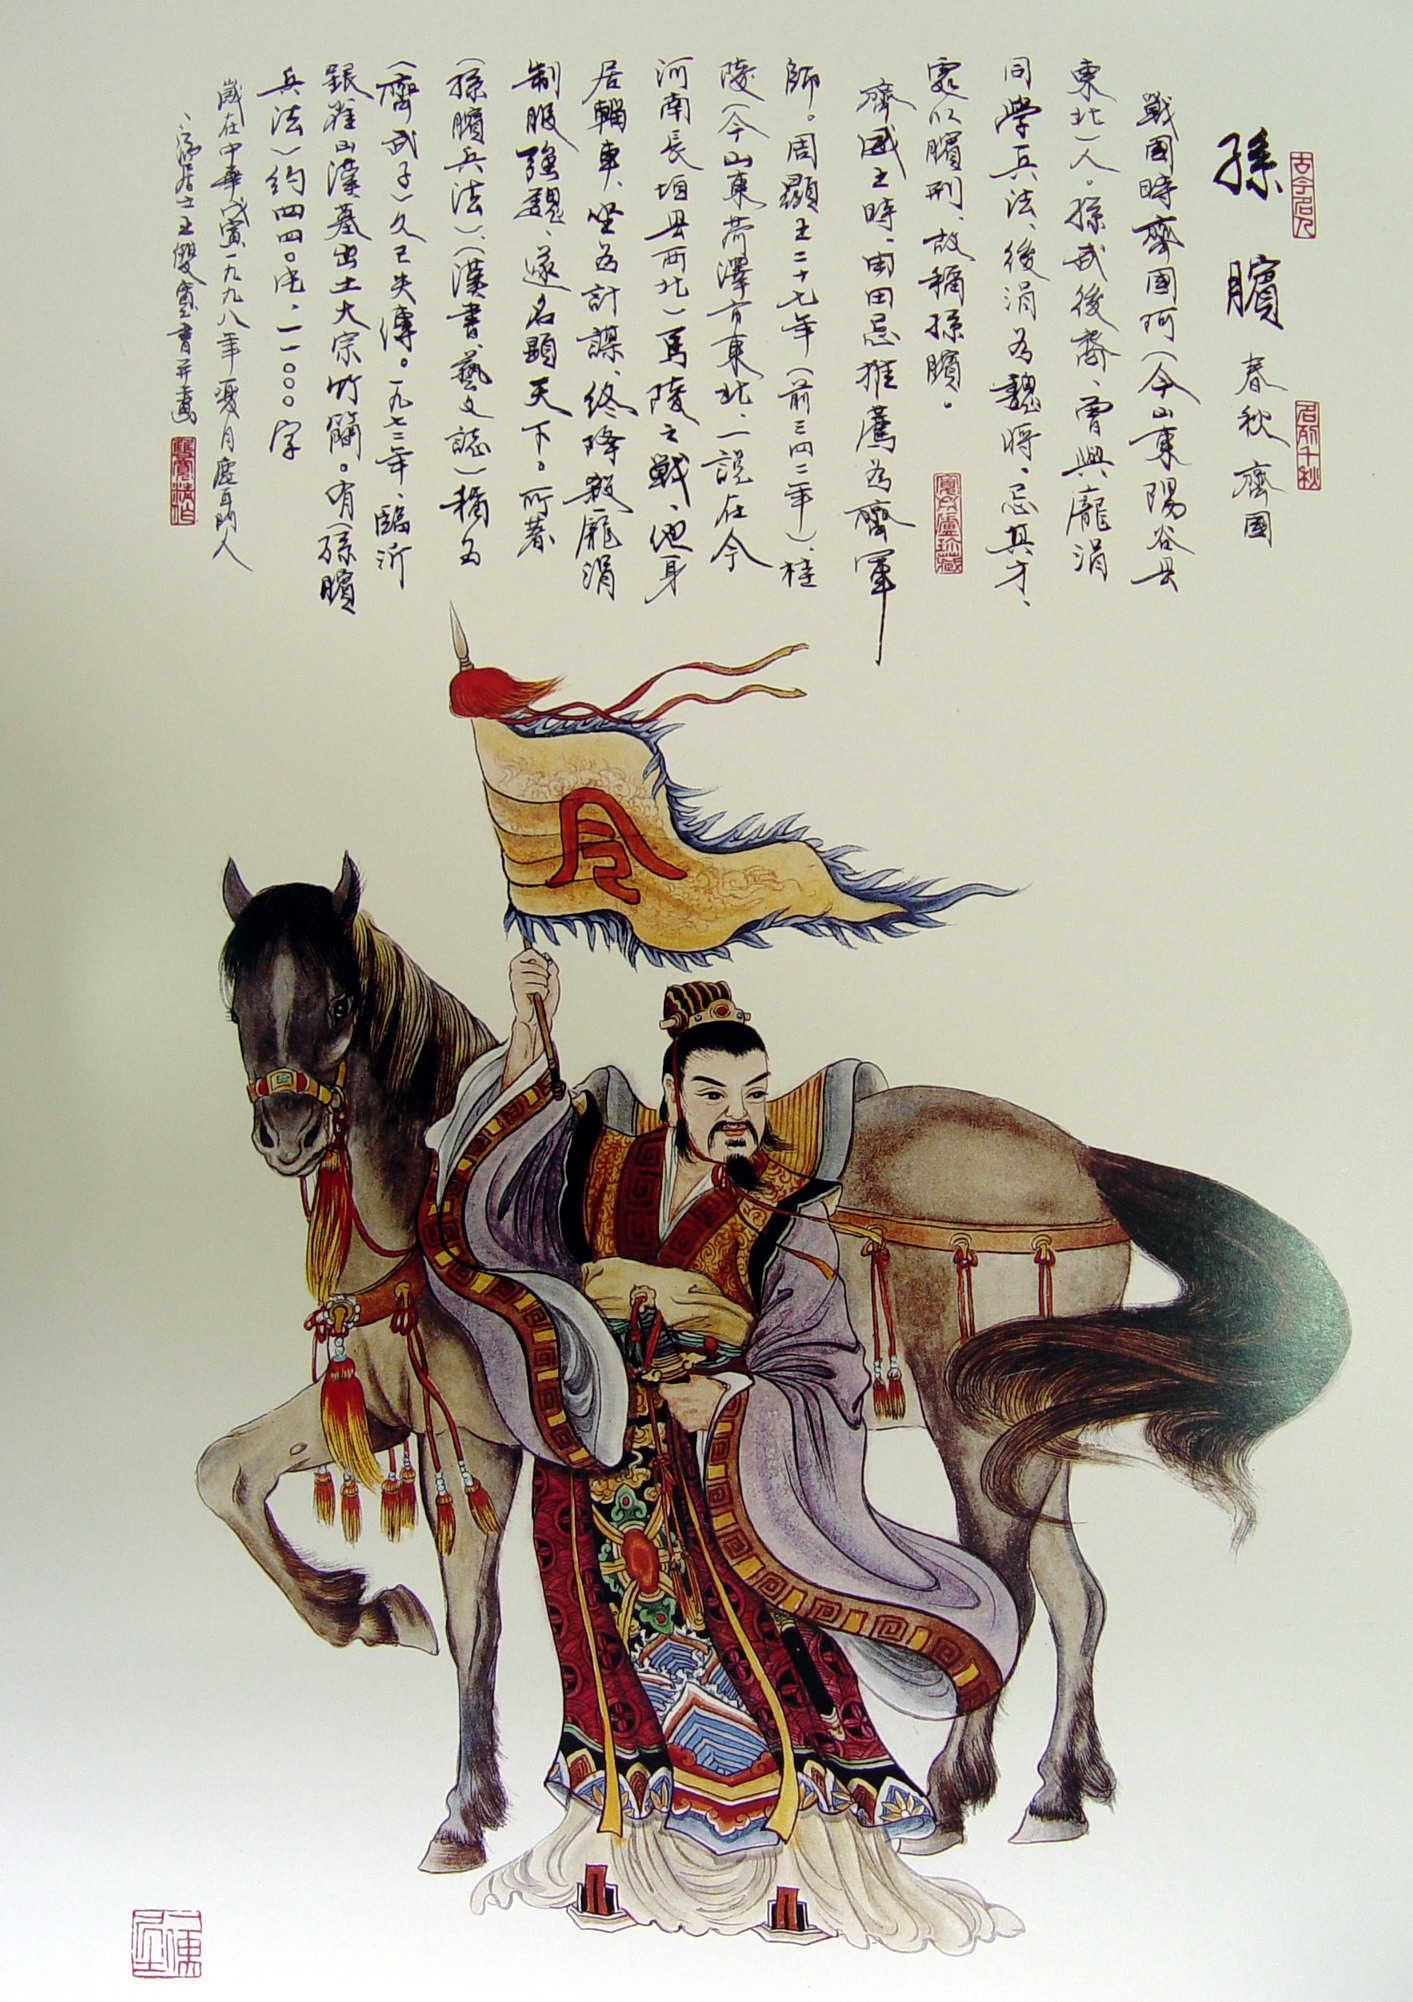 古今名人
孫臏 春秋 齊國
名前千秋
戰國時齊國阿（今山東陽谷县
東北）人。孫武後裔、曾與龐涓
同學兵法、後涓为魏將、忌其才、
處以臏刑、故稱孫臏。
齊威王時、由田忌推薦为齊軍
師。周顯王二十七年（前三四二年）、桂
陵（今山東菏澤市東北、一説在今
河南長垣县西北）馬陵之戰、他身
居輜車、坐为計謀、终降殺龐涓
制服强魏、遂名顯天下。所著
（孫臏兵法）、（漢書、藝文誌）稱为
（齊武子）久已失傳。一九七二年、臨沂
銀雀山漢墓出土大宗竹簡。有（孫臏
兵法）约四四〇片、一一〇〇〇字
歲在中華戊寅一九九八年夏月
居士王雙寬書并畫
令